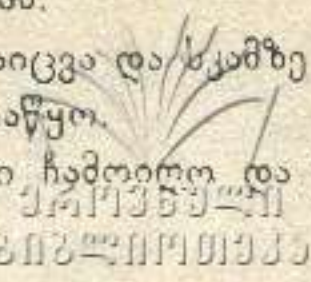 იცვა და სკამზე
აწყო.
ი ჩამოიღო და
ეროვნული
ბიბლიოთეკა